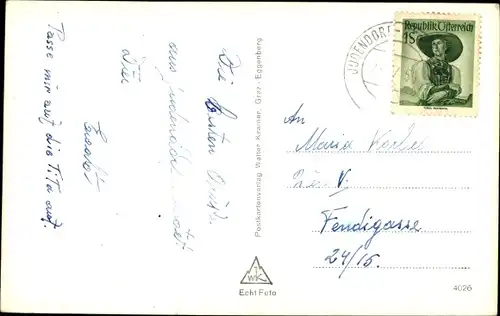 Die besten Grüße
aus
Dir
Passe mir auf die Tita auf.
Postkartenverlag Walter Kramer, Graz-Eggenberg
WK
Echt Foto
JUDENDORF-
Republik Österreich
1S
An
Maria
V.
Fendigasse
24/15.
4026